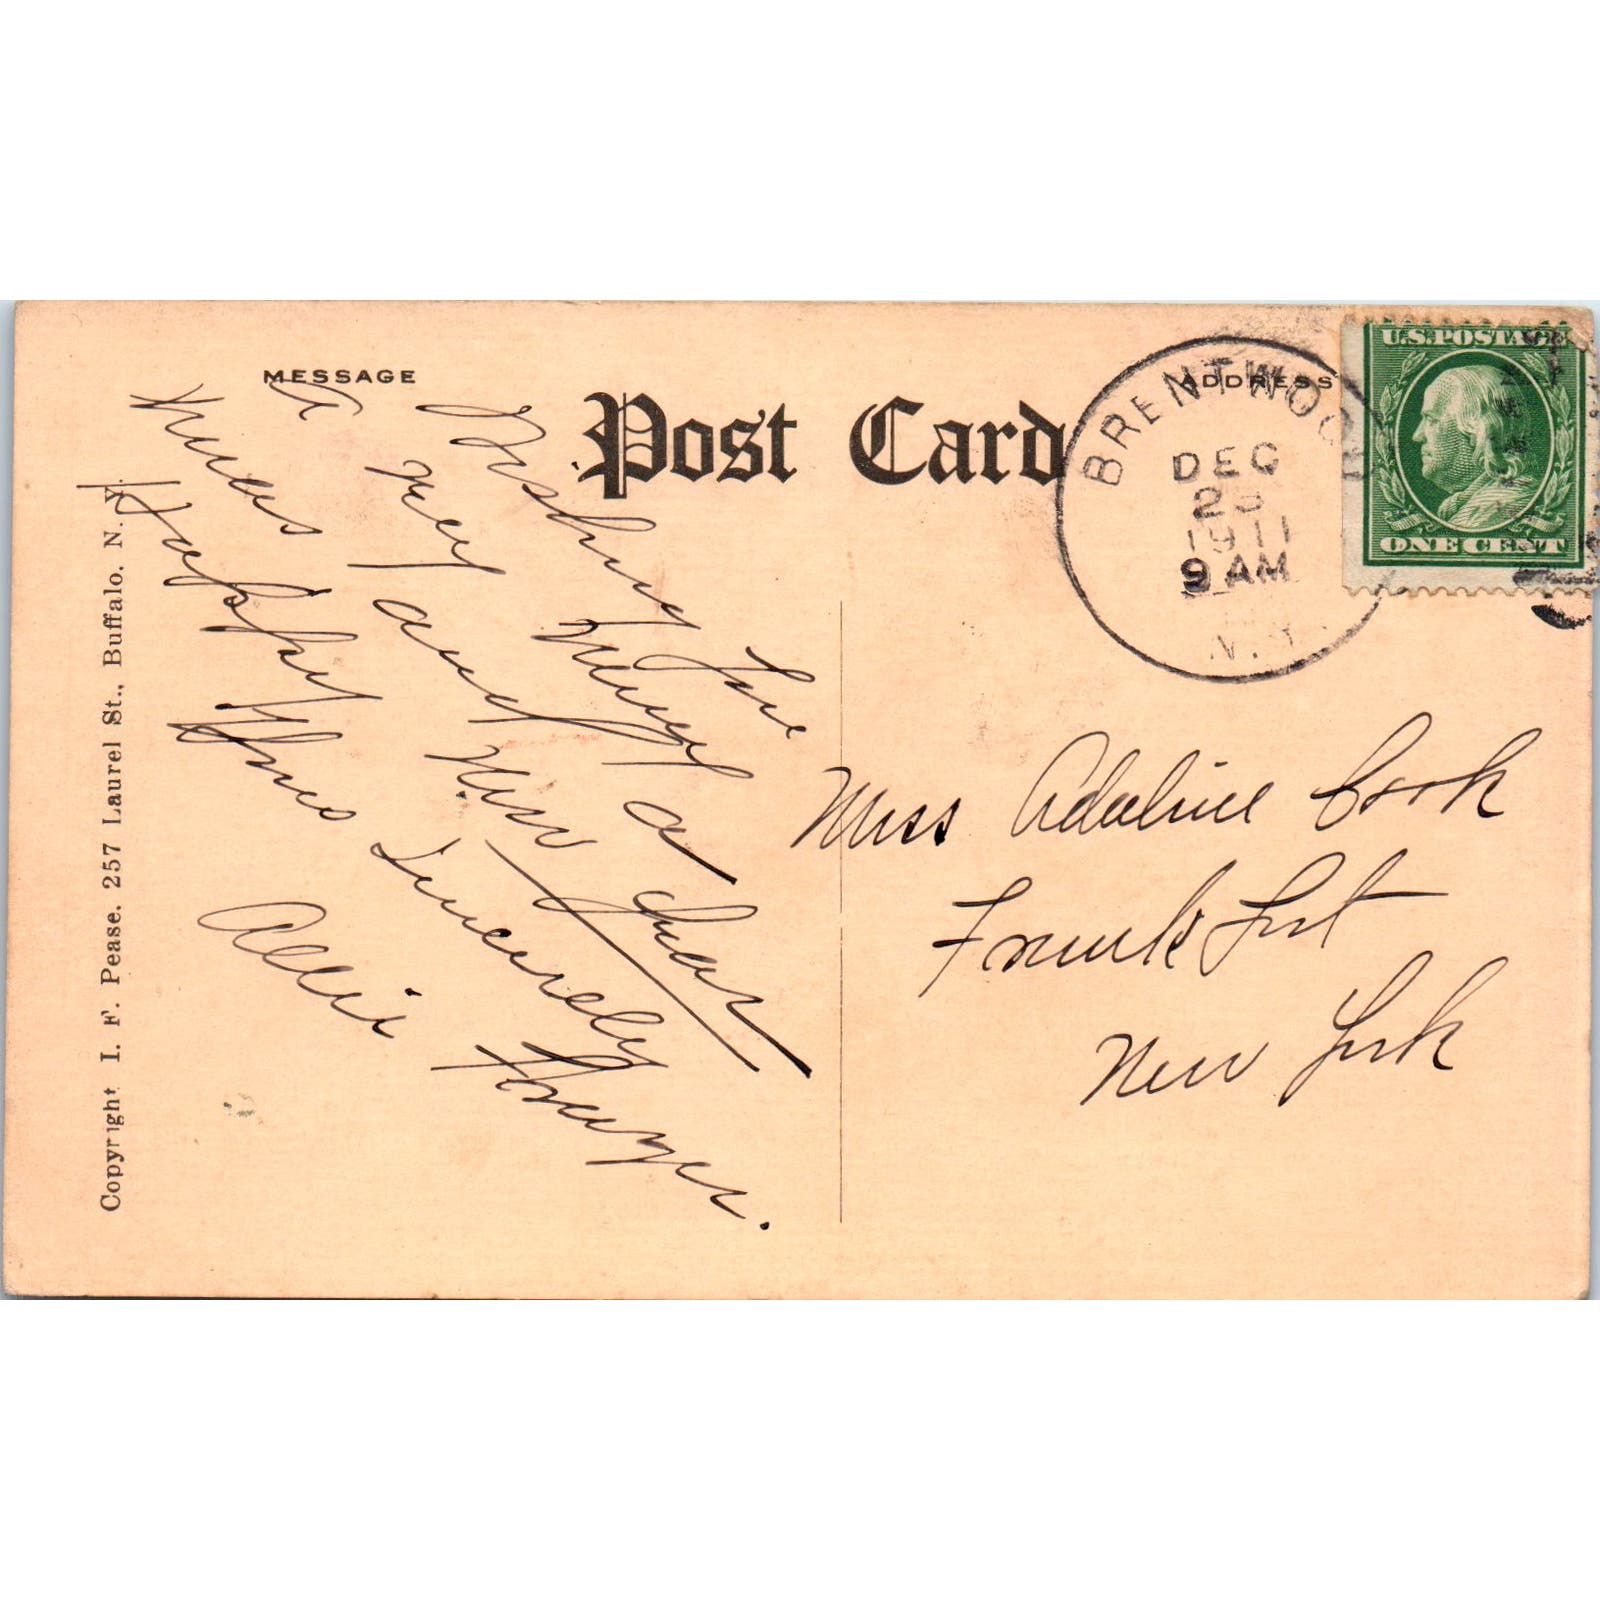 MESSAGE
Post Card
ADDRESS
BRENTWOOD
DEC
1911
9 AM
N.Y.
U.S. POSTAGE
ONE CENT
Wishing you
a Merry
Xmas and a
Happy New Year
Thus Sincerely
Allie Frazer.
Miss Adaline Cook
Frankfort
New York
Copyright I. F. Pease. 257 Laurel St., Buffalo. N. Y.